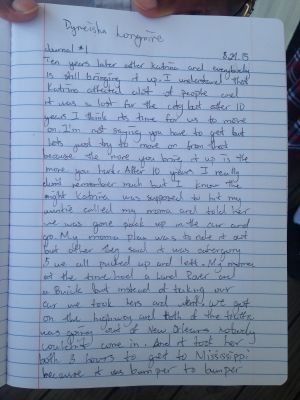 Dyneisha Longmire
Journal #1 8.21.15
Ten years later after Katrina and everybody
is still bringing it up. I understand that
Katrina affected alot of people and
it was a lost for the city but after 10
years I think its time for us to move
on. I'm not saying you have to get but
lets just try to move on from that
because the more you bring it up is the
more you hurt. After 10 years I really
don't remember much but I know the
night Katrina was supposed to hit my
auntie called my moma and told her
we was gone pack up in the car and
go. My moma plan was to ride it out
but other ones said it was
5 we all packed up and left. My
at the time had a Land Rover and
a Buick but instead of taking our
car we took hers and left. We got
on the highway and both of the traffic
was going out of New Orleans nobody
couldn't come in. And it took her
both 3 hours to get to Mississippi
because it was bumper to bumper